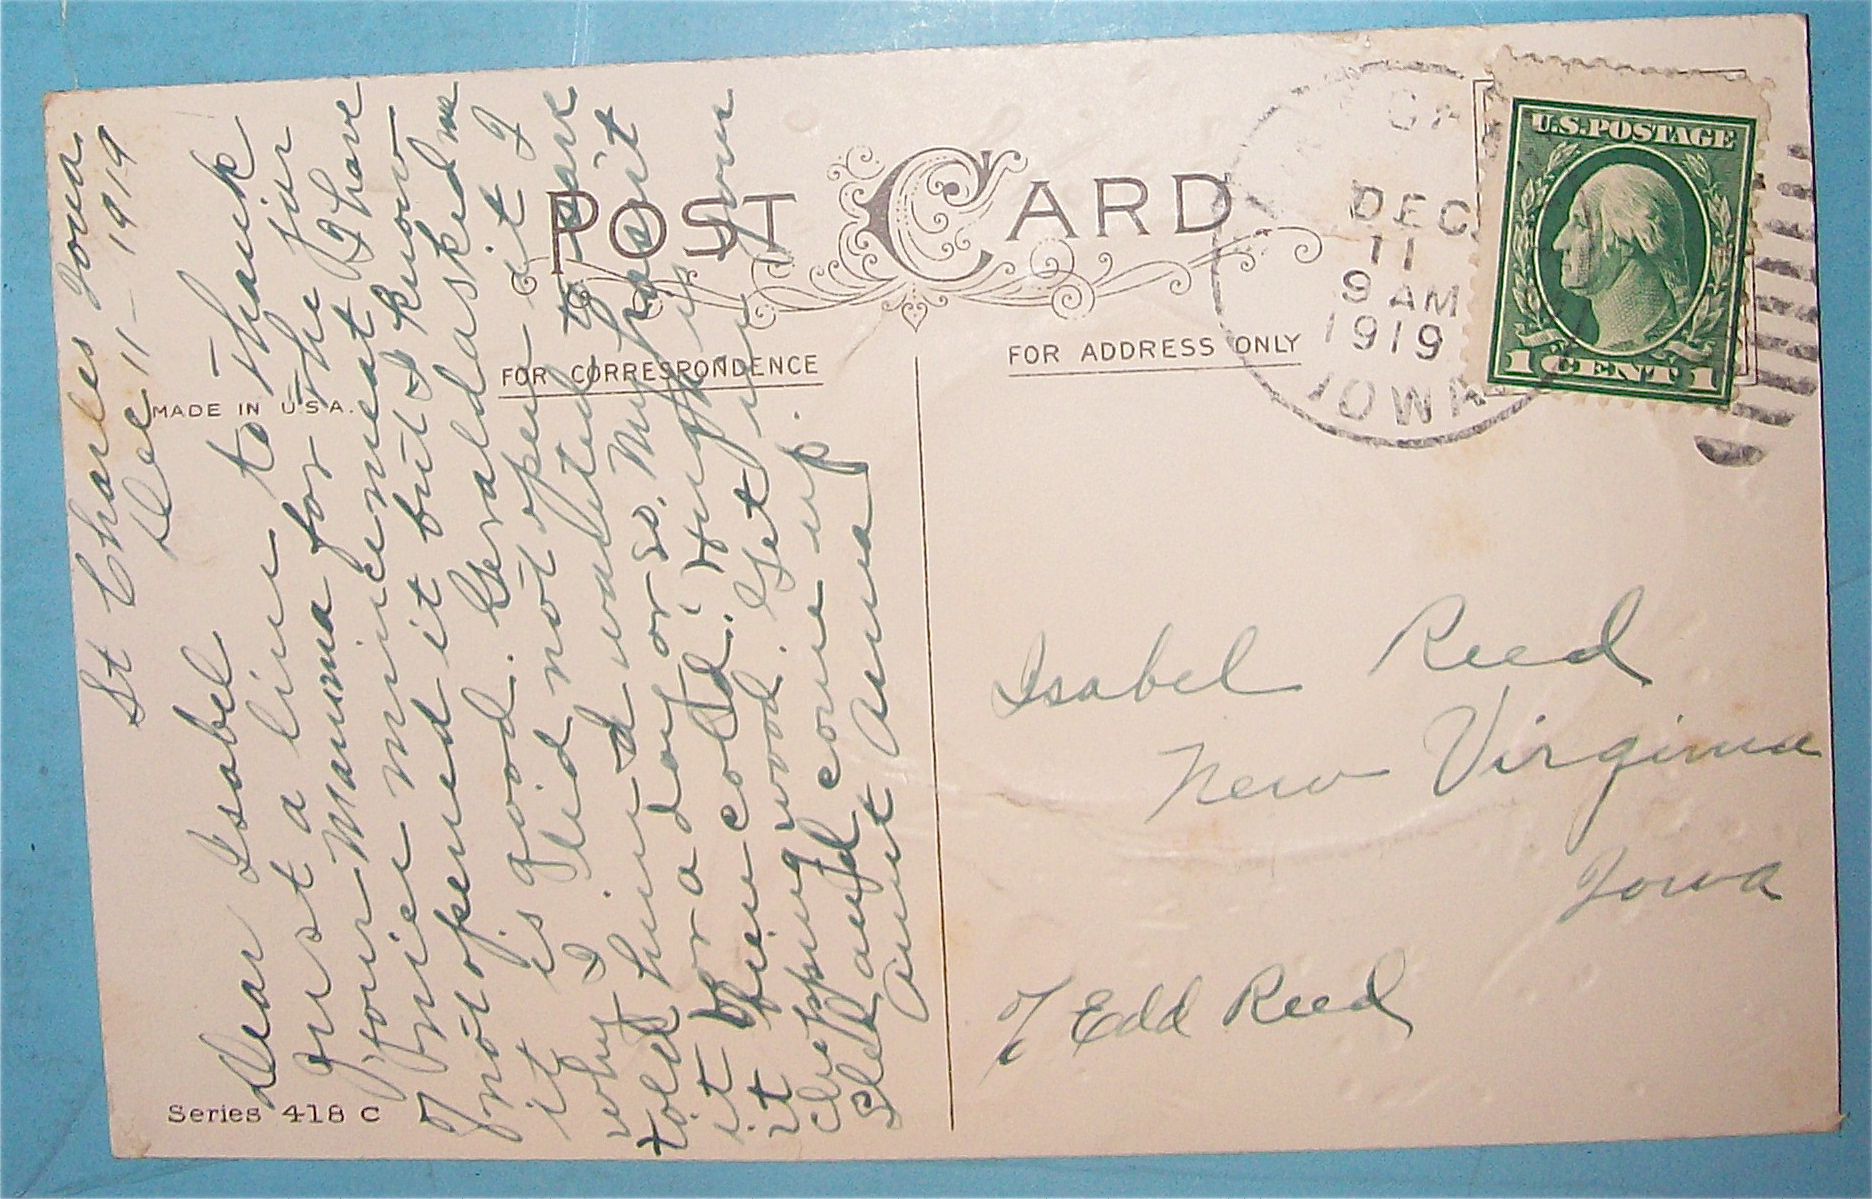 POST CARD
FOR CORRESPONDENCE
FOR ADDRESS ONLY
MADE IN U.S.A.
Series 418 C
DEC
11
9 AM
1919
IOWA
U.S. POSTAGE
1 CENT 1
St Charles Iowa
Dec 11 - 1919
Dear Isabel
Just a line to thank
your Mamma for the jar
of nice mincemeat I have
not opened it but I know
it is good. Geraldasked me
why I did not open it I
told him I wanted to save
it for a day or so. My has it
it fine cold. Hugh is
chopping wood. Get in your
Sled and come up.
Aunt Anna
Isabel Reed
New Virginia
Iowa
℅ Edd Reed